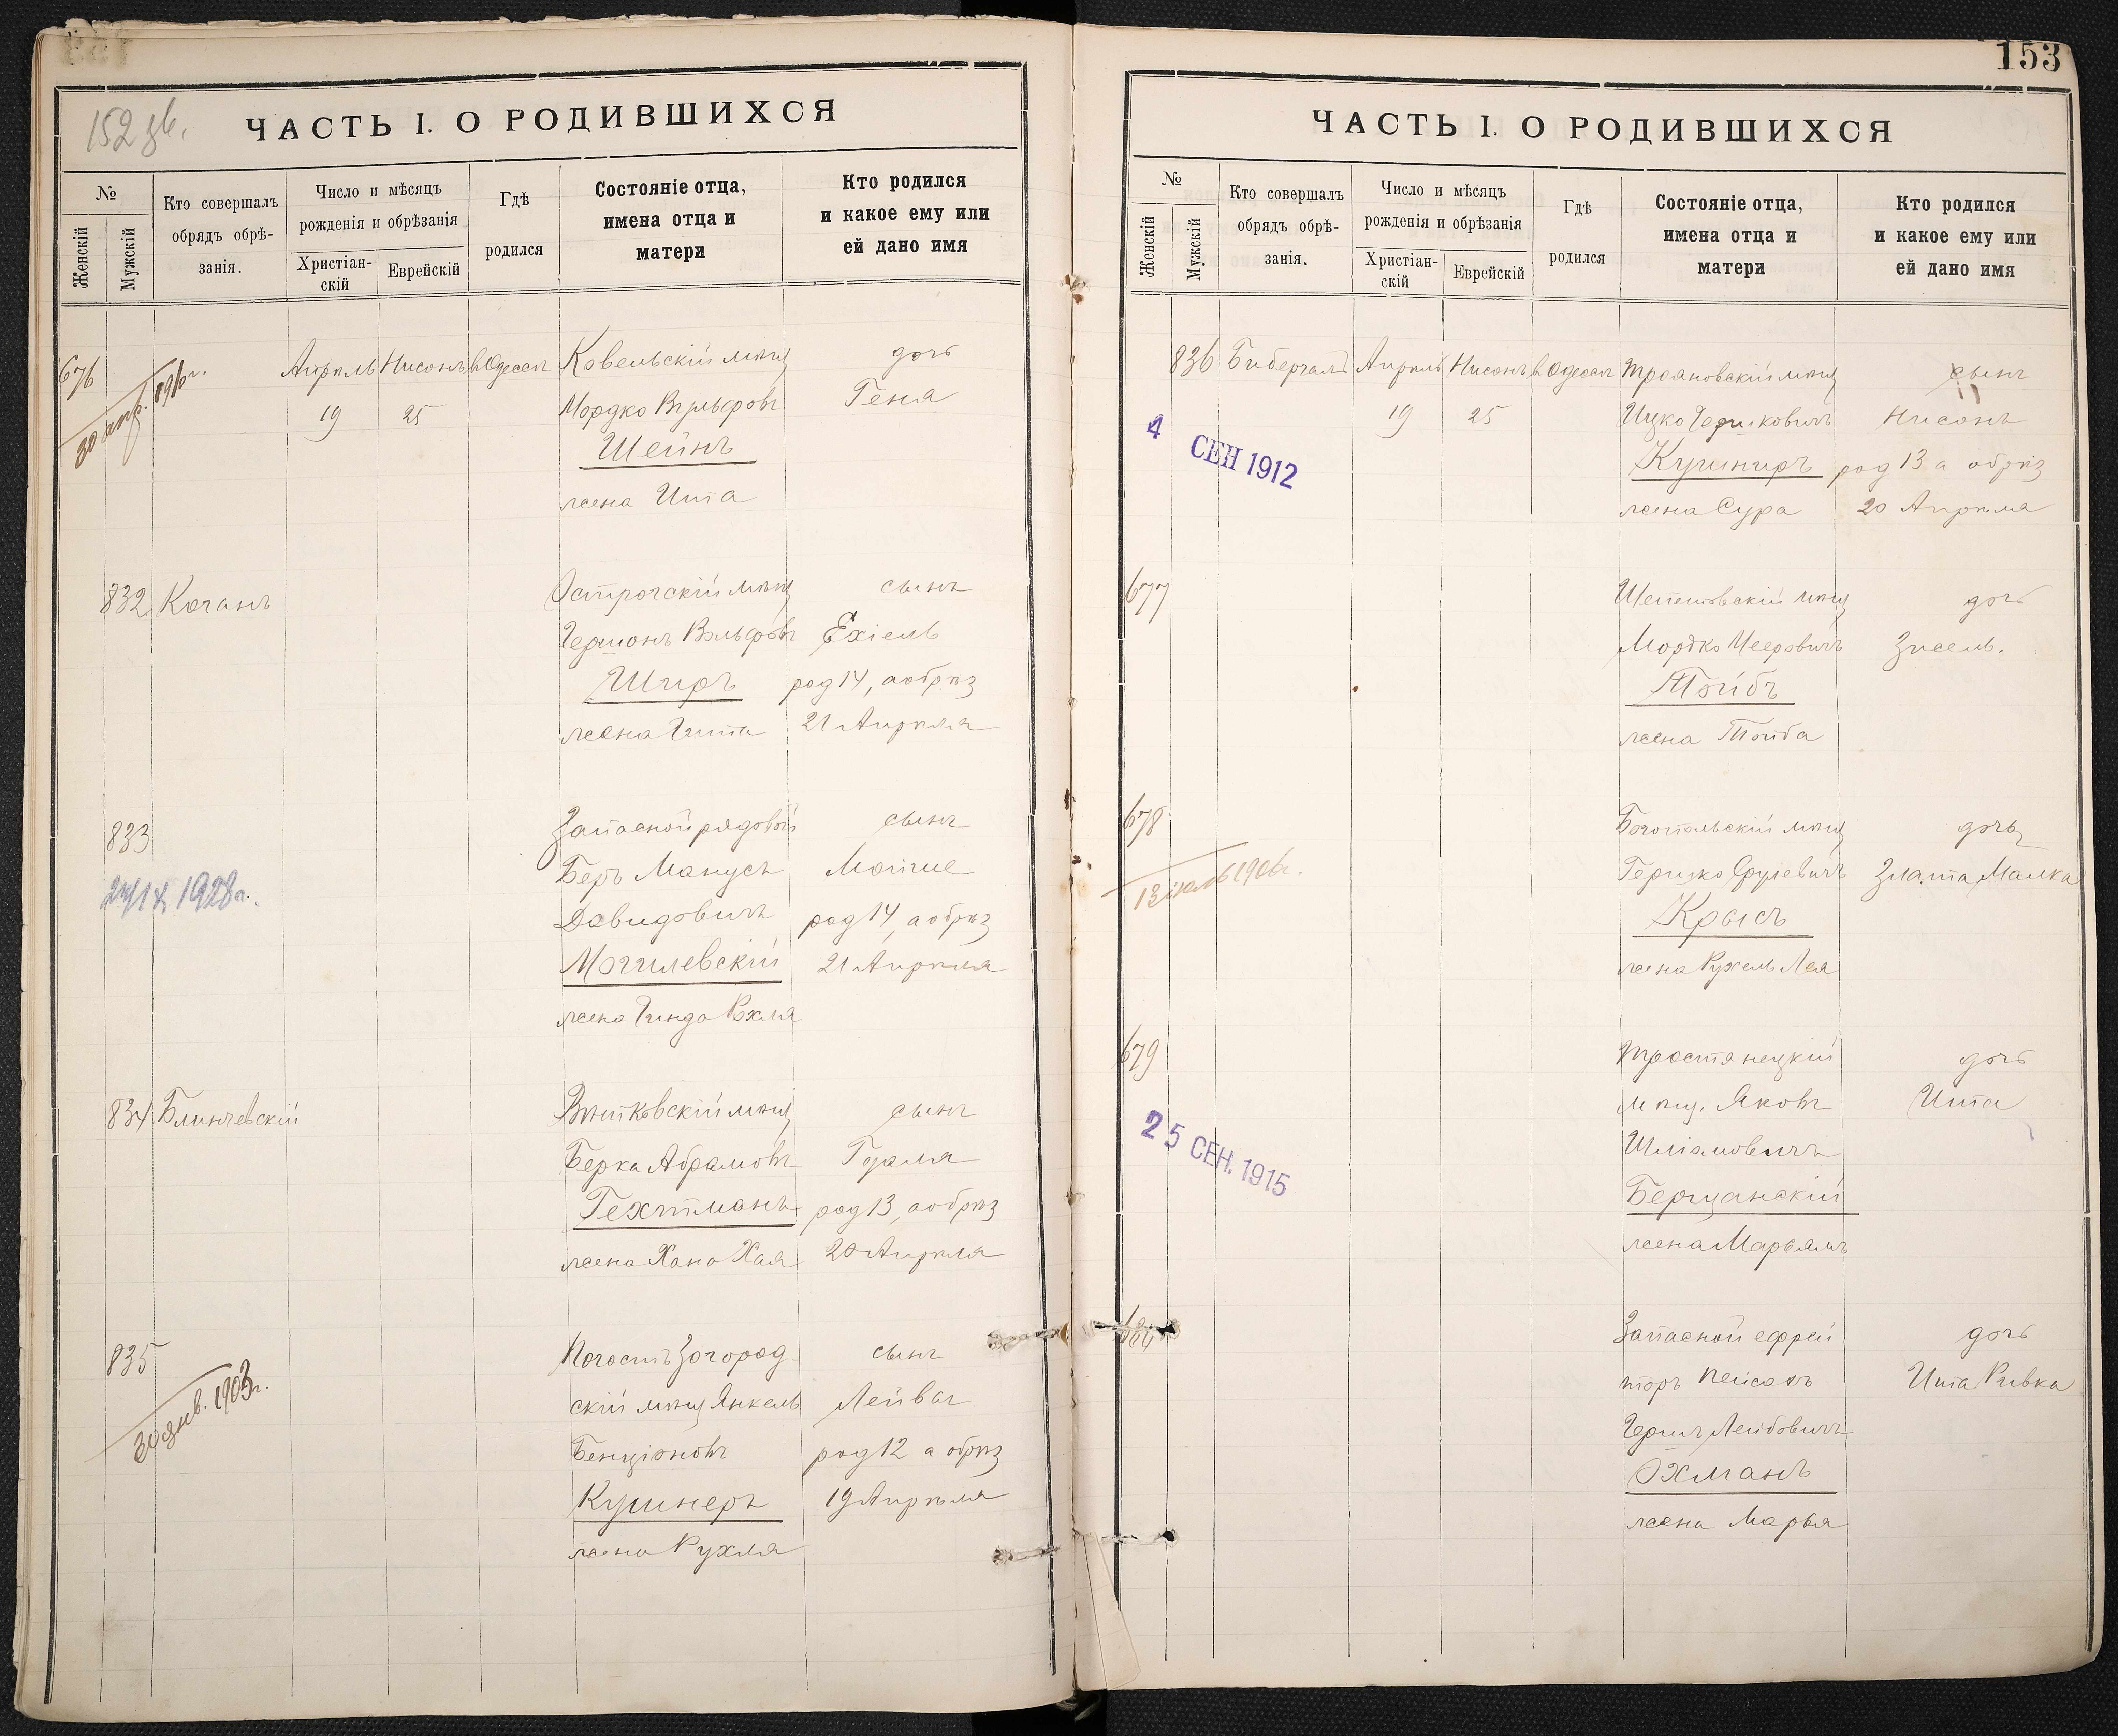 152 об.
ЧАСТЬ I. О РОДИВШИХСЯ
№
Женскій
Мужскій
Кто совершалъ
обрядъ обрѣ-
занія.
Число и мѣсяцъ
рожденія и обрѣзанія
Христіан-
скій
Еврейскій
Гдѣ
родился
Состояніе отца,
имена отца и
матери
Кто родился
и какое ему или
ей дано имя
676
30 апр. 896 г.
Апрѣль Нисонъ в Одессѣ Ковельскій мѣщ дочь
19 25 Мордко Вульфовъ Геня
Шейнъ
жена Ита
832 Коганъ Острогскій мѣщ сынъ
Гершонъ Вольфовъ Ехіель
Ширъ род 14, а обрѣз
жена Гитта 21 Апрѣля
833 Запасной рядовой сынъ
Беръ Манусъ Мойше
1928 г.
Давидовичъ род 14, а обрѣз
Могилевскій 21 Апрѣля
жена Гинда Рохля
834 Блинчевскій Витковскій мѣщ сынъ
Берка Абрамовъ Гдаля
Гехтманъ род 13, а обрѣз
жена Хана Хая 20 Апрѣля
835 Погостъ Загород- сынъ
30 янв. 1903 г.
скій мѣщ Янкель Лейба
Бенціоновъ род 12 а обрѣз
Кушнеръ 19 Апрѣля
жена Рухля
153
ЧАСТЬ I. О РОДИВШИХСЯ
№
Женскій
Мужскій
Кто совершалъ
обрядъ обрѣ-
занія.
Число и мѣсяцъ
рожденія и обрѣзанія
Христіан-
скій
Еврейскій
Гдѣ
родился
Состояніе отца,
имена отца и
матери
Кто родился
и какое ему или
ей дано имя
836 Бибергалъ Апрѣль Нисонъ в Одессѣ Трояновскій мѣщ сынъ
19 25 Ицко Гершковичъ Нисонъ
4 СЕН 1912
Кушниръ род 13 а обрѣз
жена Сура 20 Апрѣля
677 Шепетовскій мѣщ дочь
Мордко Мееровичъ Зисель.
Тойбъ
жена Тойба
678 Богопольскій мѣщ дочь
Гершко Срулевичъ Злата Малка
1906 г.
Крысъ
жена Рухель Лея
679 Тростянецкій дочь
мѣщ. Яковъ Ита
25 СЕН. 1915
Шліомовичъ
Бершанскій
жена Марьямъ
680 Запасной ефрей дочь
торъ Пейсахъ Ита Ривка
Гершъ Лейбовичъ
Охманъ
жена Марья